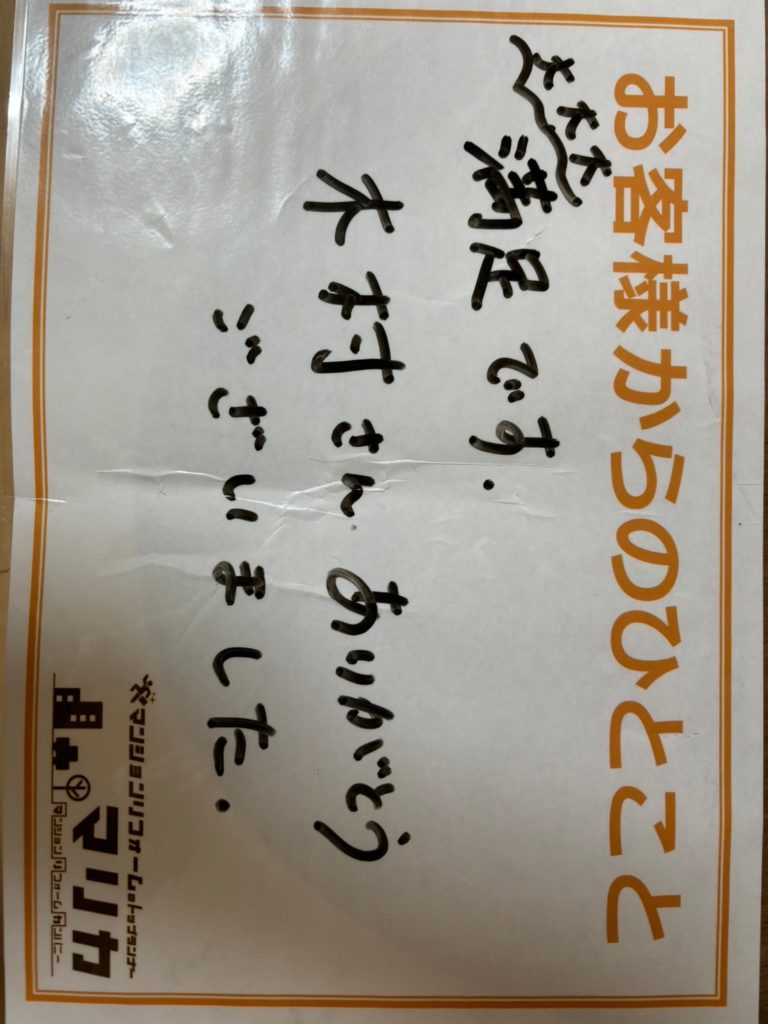 お客様からのひとこと
大大大
満足です.
木村さん ありがとう
ございました.
マンションリフォームのトップランナー
マリカ
マンションリフォームカンパニー